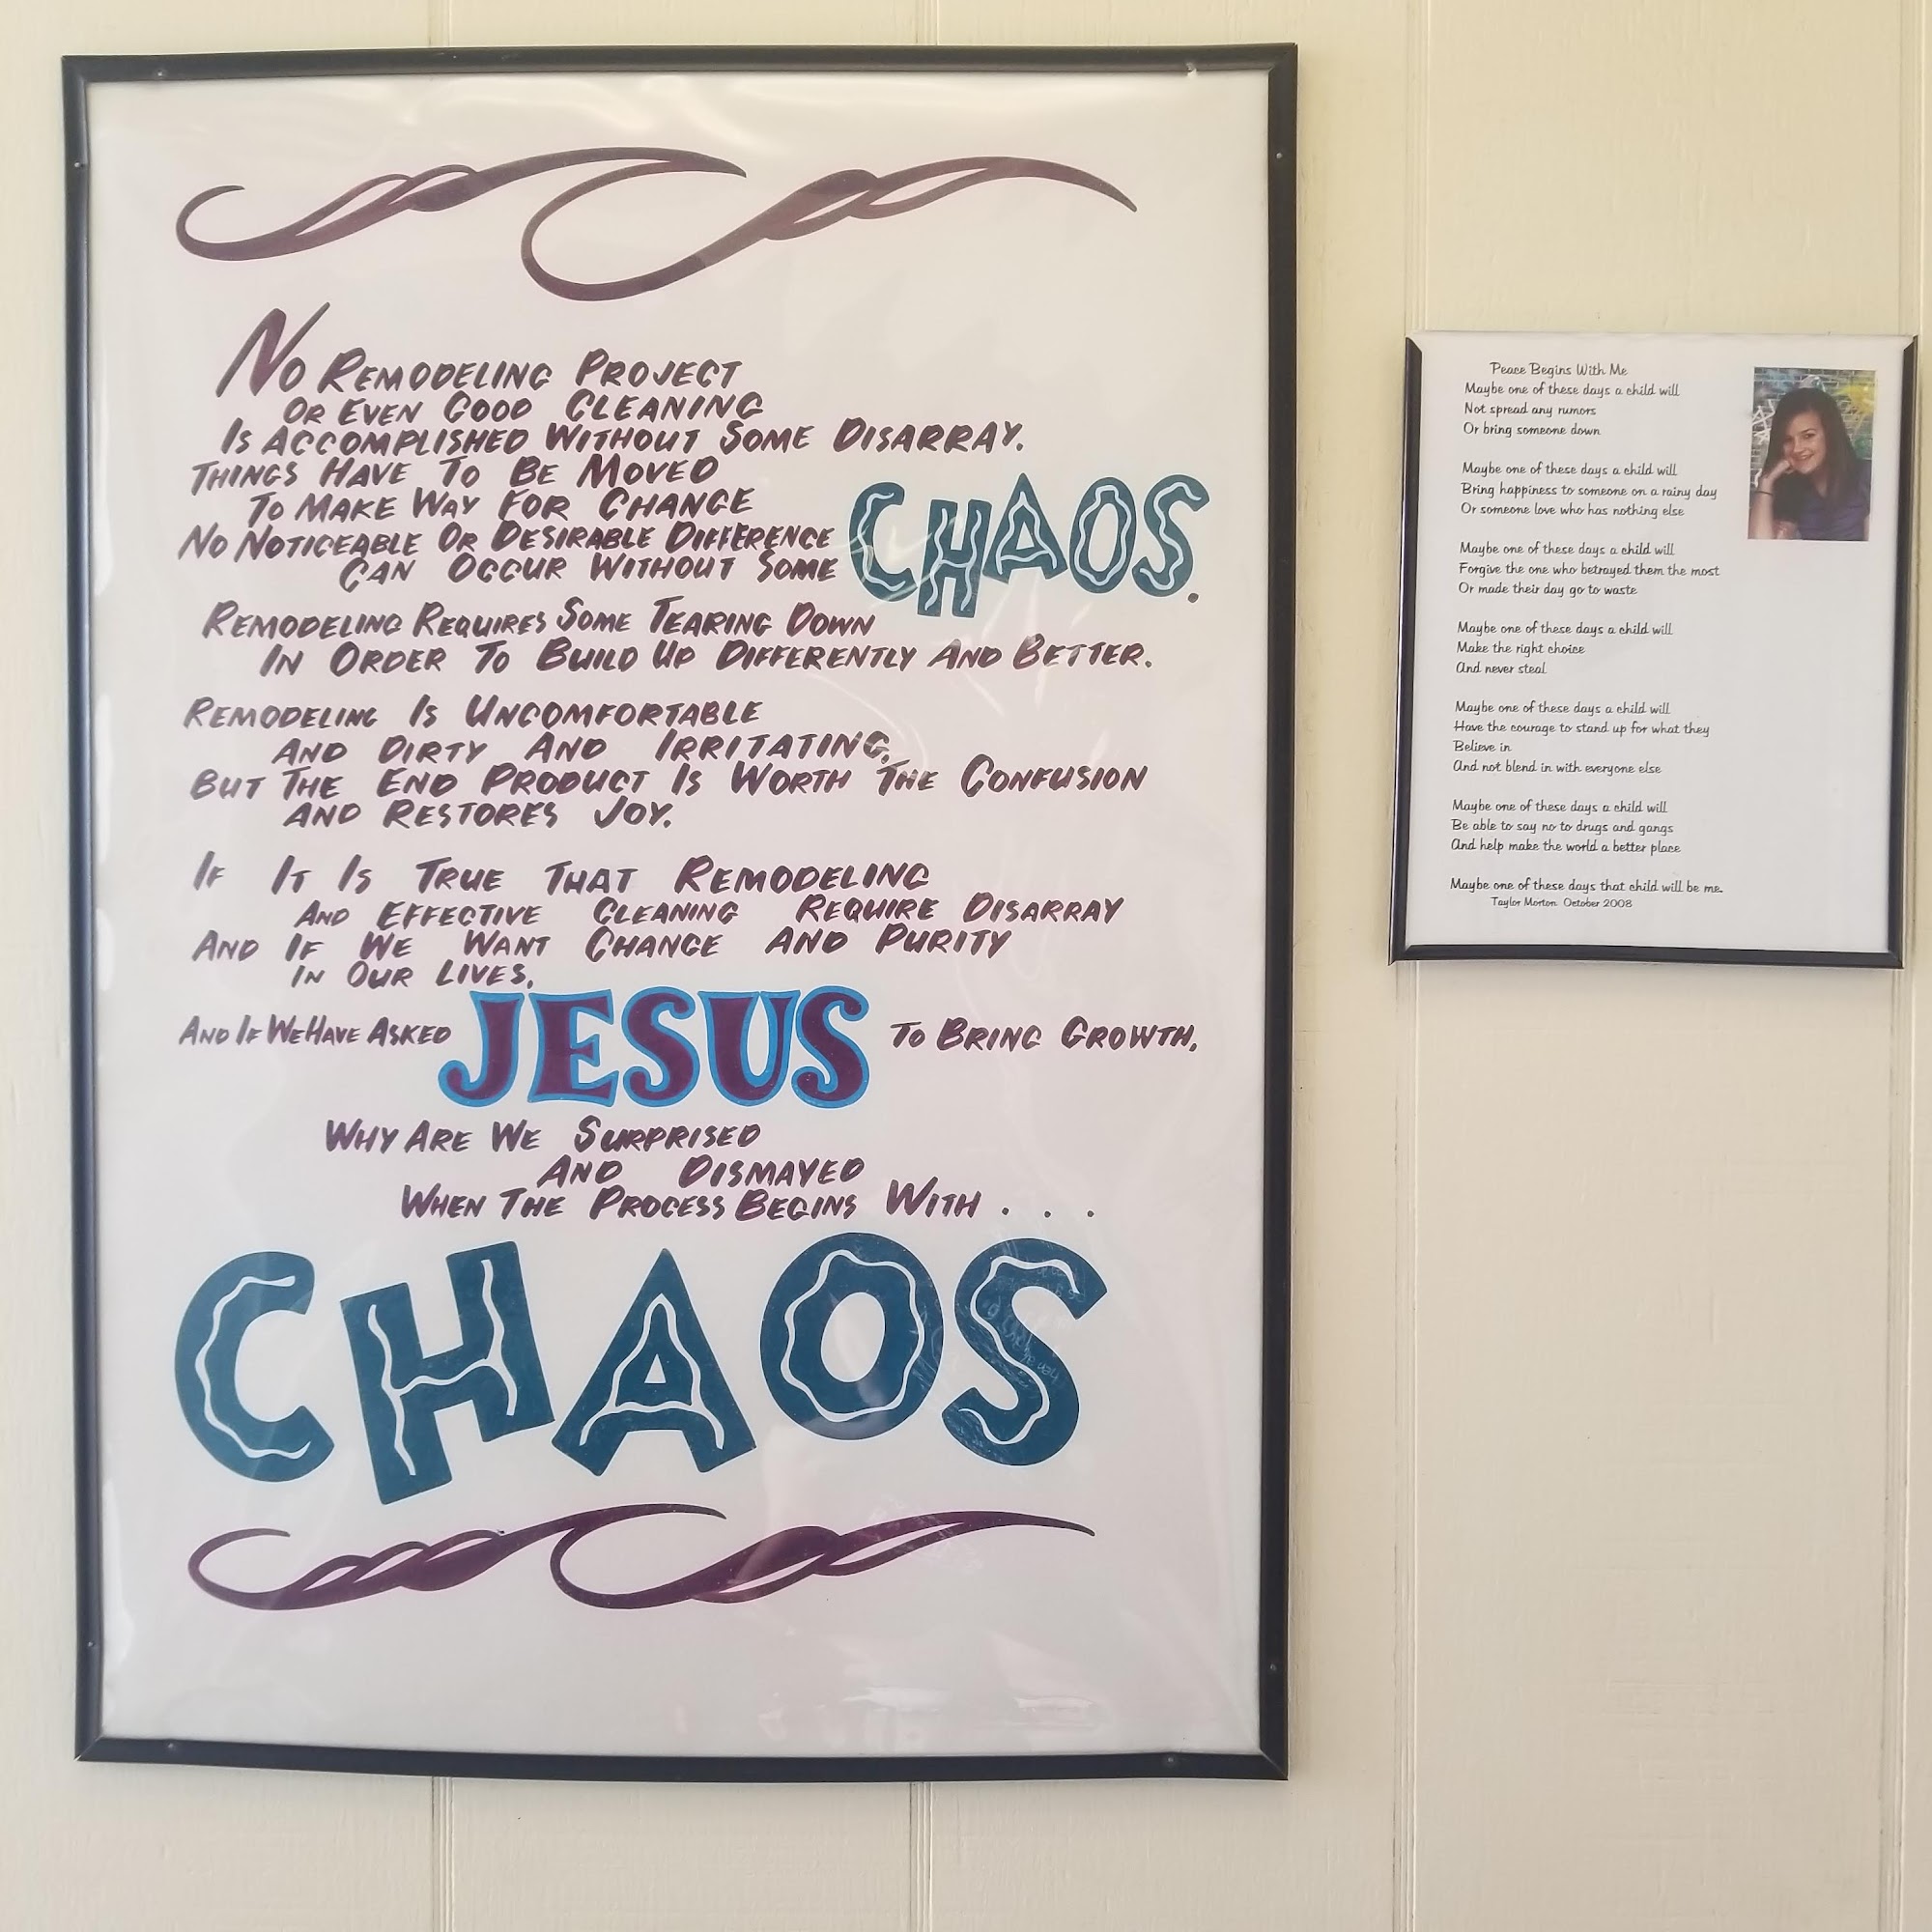 No Remodeling Project
Or Even Good Cleaning
Is Accomplished Without Some Disarray.
Things Have To Be Moved
To Make Way For Change
No Noticeable Or Desirable Difference
Can Occur Without Some CHAOS.
Remodeling Requires Some Tearing Down
In Order To Build Up Differently And Better.
Remodeling Is Uncomfortable
And Dirty And Irritating,
But The End Product Is Worth The Confusion
And Restores Joy.
If It Is True That Remodeling
And Effective Cleaning Require Disarray
And If We Want Change And Purity
In Our Lives,
And If We Have Asked JESUS To Bring Growth,
Why Are We Surprised
And Dismayed
When The Process Begins With . . .
CHAOS
Peace Begins With Me
Maybe one of these days a child will
Not spread any rumors
Or bring someone down
Maybe one of these days a child will
Bring happiness to someone on a rainy day
Or someone love who has nothing else
Maybe one of these days a child will
Forgive the one who betrayed them the most
Or made their day go to waste
Maybe one of these days a child will
Make the right choice
And never steal
Maybe one of these days a child will
Have the courage to stand up for what they
Believe in
And not blend in with everyone else
Maybe one of these days a child will
Be able to say no to drugs and gangs
And help make the world a better place
Maybe one of these days that child will be me.
Taylor Morton October 2008